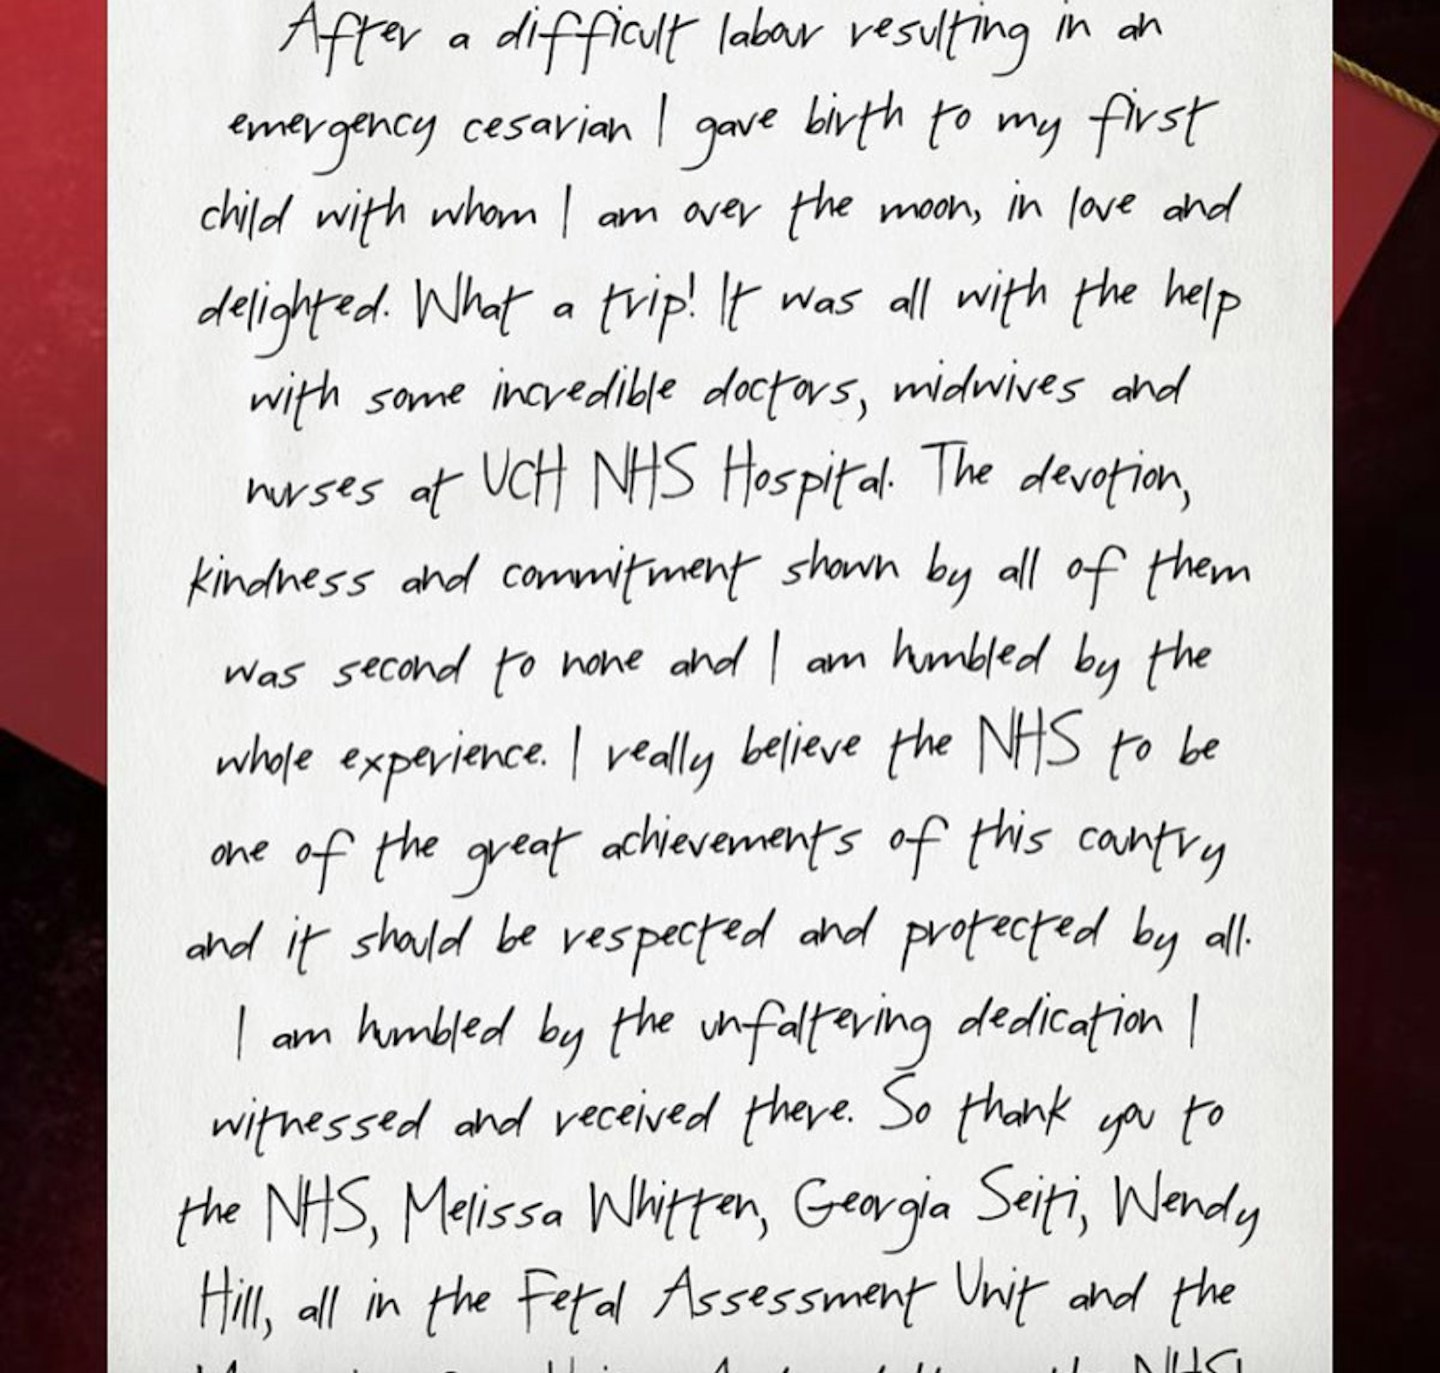 After a difficult labour resulting in an
emergency cesarian I gave birth to my first
child with whom I am over the moon, in love and
delighted. What a trip! It was all with the help
with some incredible doctors, midwives and
nurses at UCH NHS Hospital. The devotion,
kindness and commitment shown by all of them
was second to none and I am humbled by the
whole experience. I really believe the NHS to be
one of the great achievements of this country
and it should be respected and protected by all.
I am humbled by the unfaltering dedication I
witnessed and received there. So thank you to
the NHS, Melissa Whitten, Georgia Seiti, Wendy
Hill, all in the Fetal Assessment Unit and the
NHS!